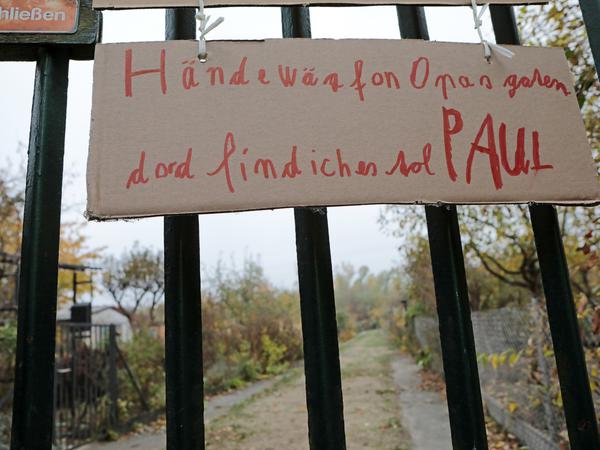 chließen
Händewäg fon Opas gaten
dord find iches tol PAUL